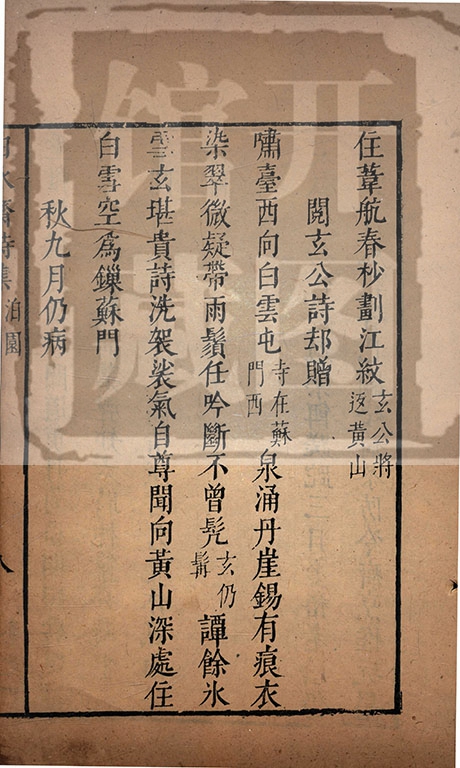 住葦航春杪劃江紋玄公將返黃山
閱玄公詩却贈
嘯臺西向白雲屯寺在蘇門西泉涌丹崖錫有痕衣
染翠微疑帶雨鬚任吟斷不曾髡玄仍髯譚餘氷
雪玄堪貴詩洗袈裟氣自尊聞向黃山深處住
白雲空爲鏁蘇門
秋九月仍病
詩集 泊園 八
开图
馆藏